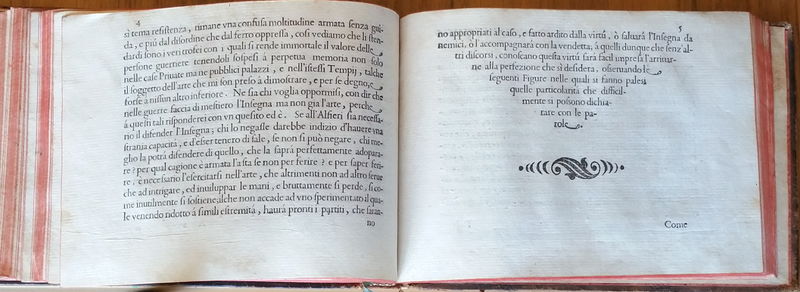 4
si tema resistenza, rimane vna confusa moltitudine armata senza gui-
da, e più dal disordine che dal ferro oppressa, cosi vediamo che li sten-
dardi sono i veri trofei con i quali si rende immortale il valore delle
persone guerriere tenendoli sospesi à perpetua memoria non solo
nelle case Priuate ma ne publici palazzi, e nell'istessi Tempij, talche
il soggetto dell'arte che mi son preso à dimostrare, e per se degno, e
forse à nissun altro inferiore. Ne sia chi voglia oppormisi, con dir che
nelle guerre faccia di mestiero l'Insegna ma non già l'arte, perche
à questi tali risponderei con vn quesito ed è. Se all'Alfieri sia necessa-
rio il difender l'Insegna; chi lo negasse darebbe inditio d'hauere vna
strania capacità, e d'esser tenero di sale, se non si può negare, chi me-
glio la potrà difendere di quello, che la saprà perfettamente adopara-
re? per qual cagione è armata l'asta se non per ferire? e per saper feri-
re, è necessario l'esercitarsi nell'arte, che altrimenti non ad altro serue
che ad intrigare, ed inuiluppar le mani, e bruttamente si perde, si co-
me inutilmente si sostiene; alche non accade ad vno sperimentato il qua-
le venendo ridotto à simili estremità, haurà pronti i partiti, che saran-
no
5
no appropriati al caso, e fatto ardito dalla virtù, ò saluarà l'Insegna da
nemici, ò l'accompagnarà con la vendetta; à quelli dunque che senz'al-
tri discorsi, conoscano questa virtù sarà facil impresa l'arriuar-
ne alla perfezione che si desidera, osseruando le
seguenti Figure nelle quali si fanno palesi
quelle particolarità che difficil-
mente si possono dichia-
rare con le pa-
role.
Come